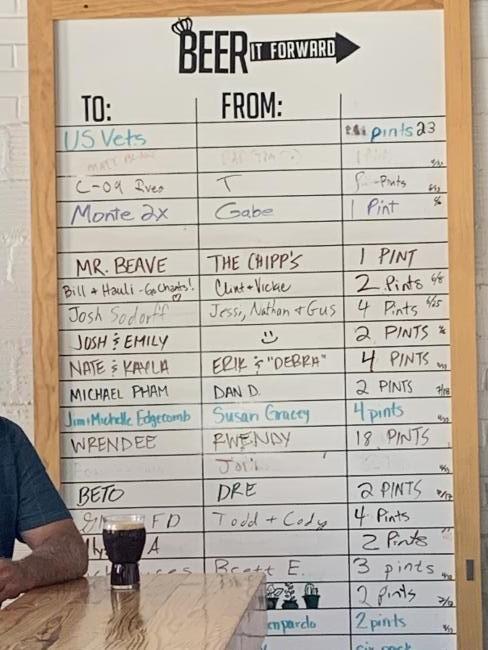 BEER IT FORWARD
TO: FROM:
US Vets pints 23
C-09 T Pints
Monte 2x Gabe 1 Pint
MR. BEAVE THE CHIPP'S 1 PINT
Bill + Hauli - Go Chants! Clint + Vickie 2 Pints 6/8
Josh Sodorff Jessi, Nathan + Gus 4 Pints 6/25
JOSH & EMILY 2 PINTS
NATE & KAYLA ERIK & "DEBRA" 4 PINTS
MICHAEL PHAM DAN D. 2 PINTS 7/18
Jim + Michelle Edgecomb Susan Gracey 4 pints
WRENDEE RWENDY 18 PINTS
BETO DRE 2 PINTS
FD Todd + Cody 4 Pints
A 2 Pints
Brett E. 3 pints
2 pints
enpardo 2 pints
six pack